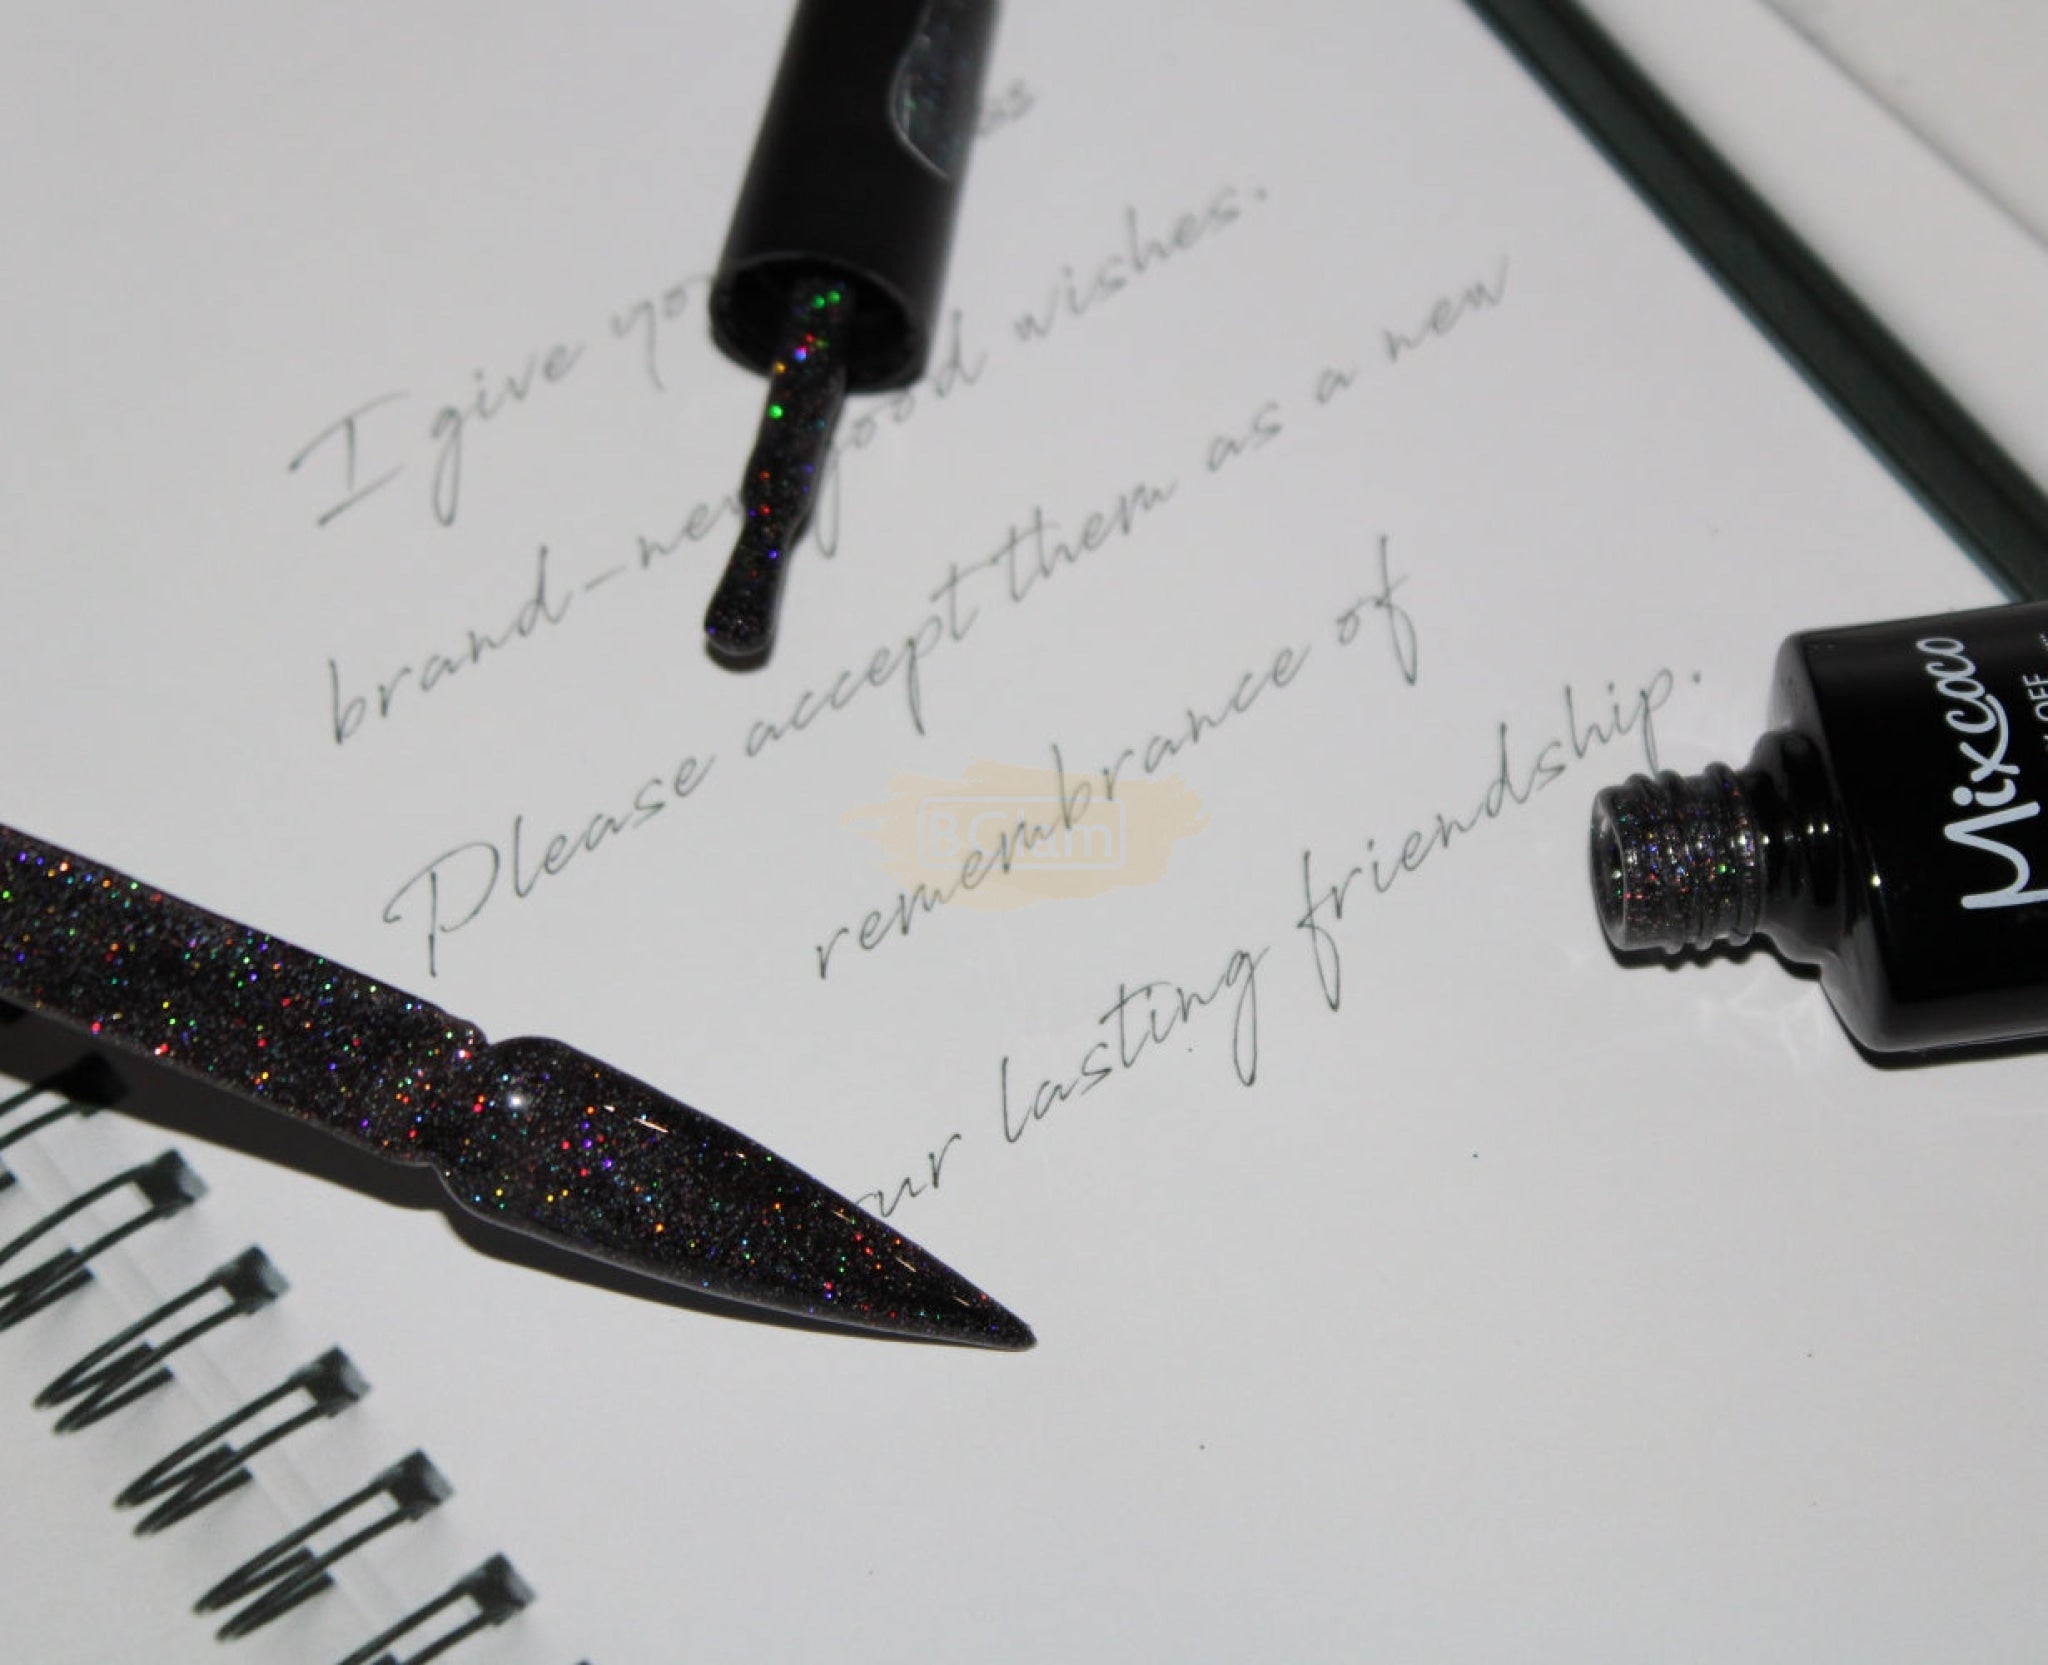 as
I give you
brand-new good wishes.
Please accept them as a new
remembrance of
our lasting friendship.
BGlam
Mixcoco
OFF